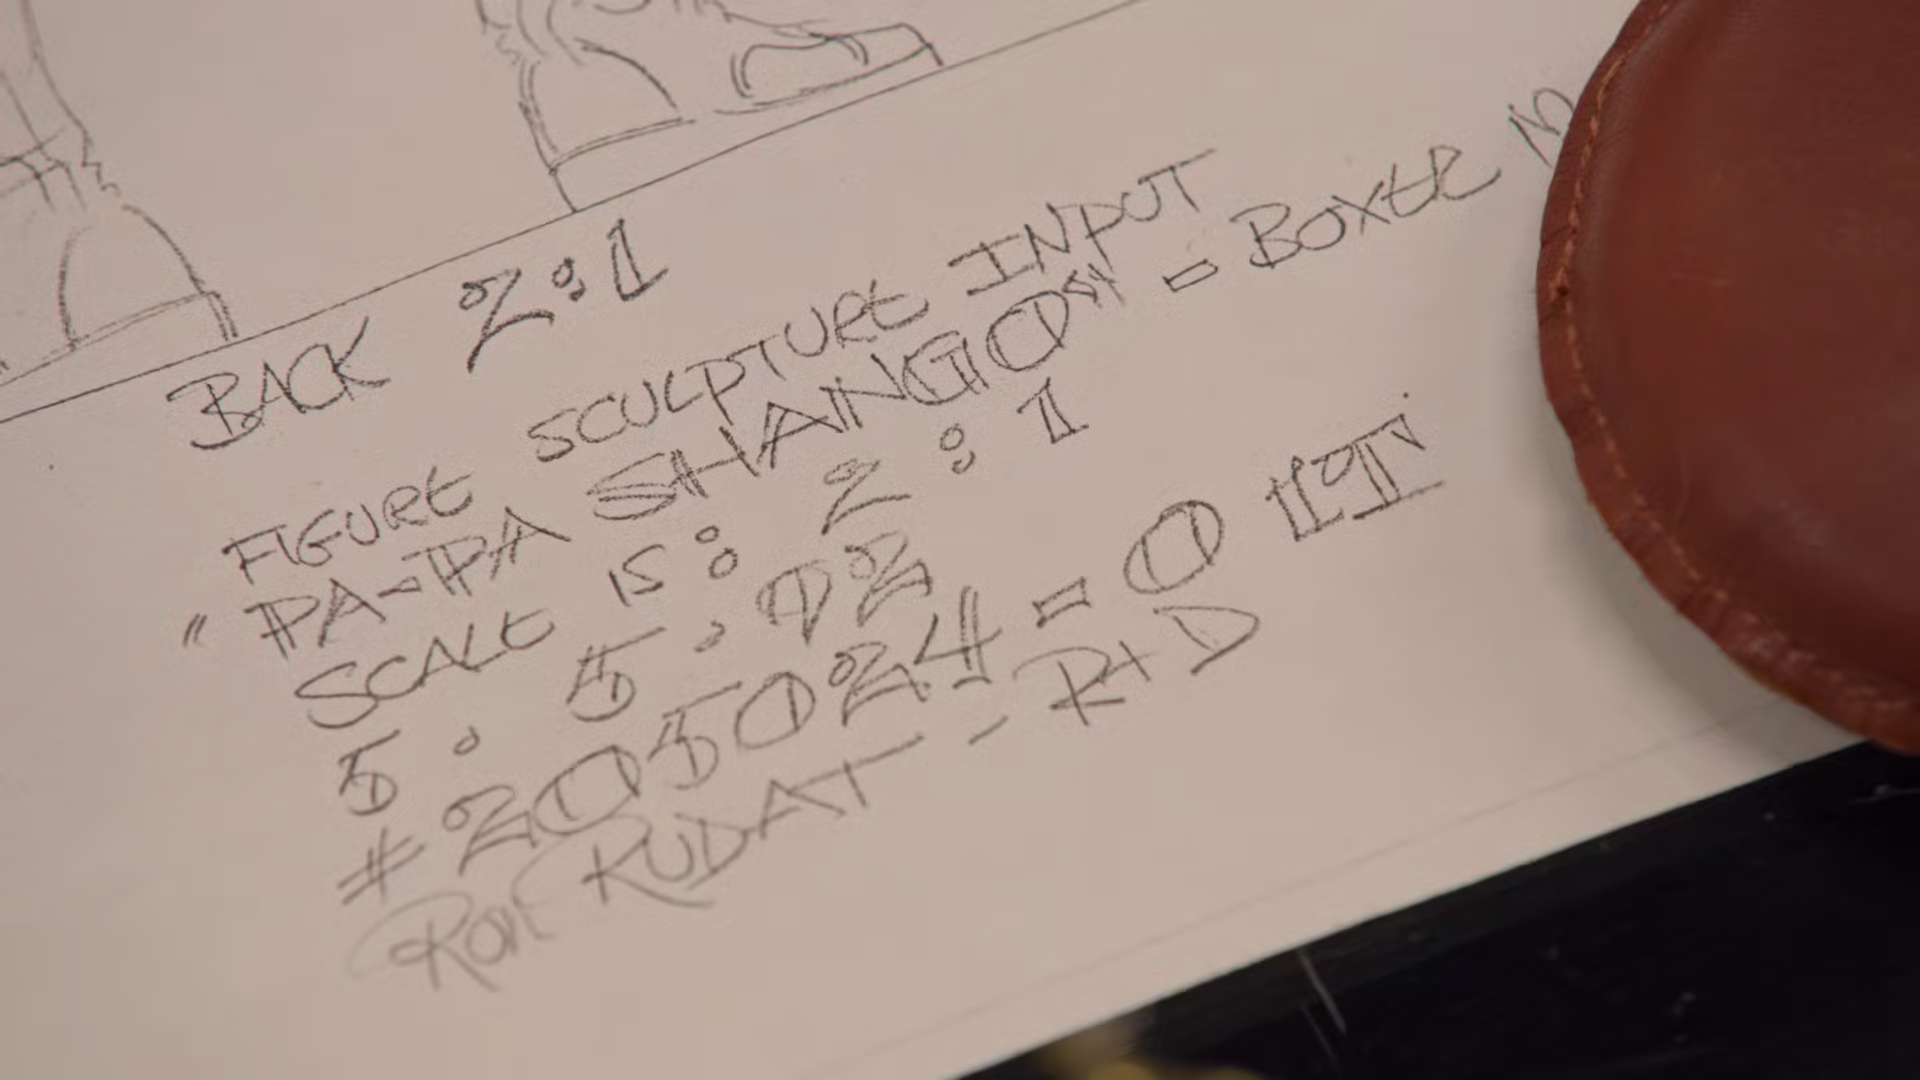 BACK 2:1
FIGURE SCULPTURE INPUT
"PA-PA SHANGO" = BOXER
SCALE IS: 2:1
5.5.92
#205024 = 0 1PT
RON RUDAT - R+D